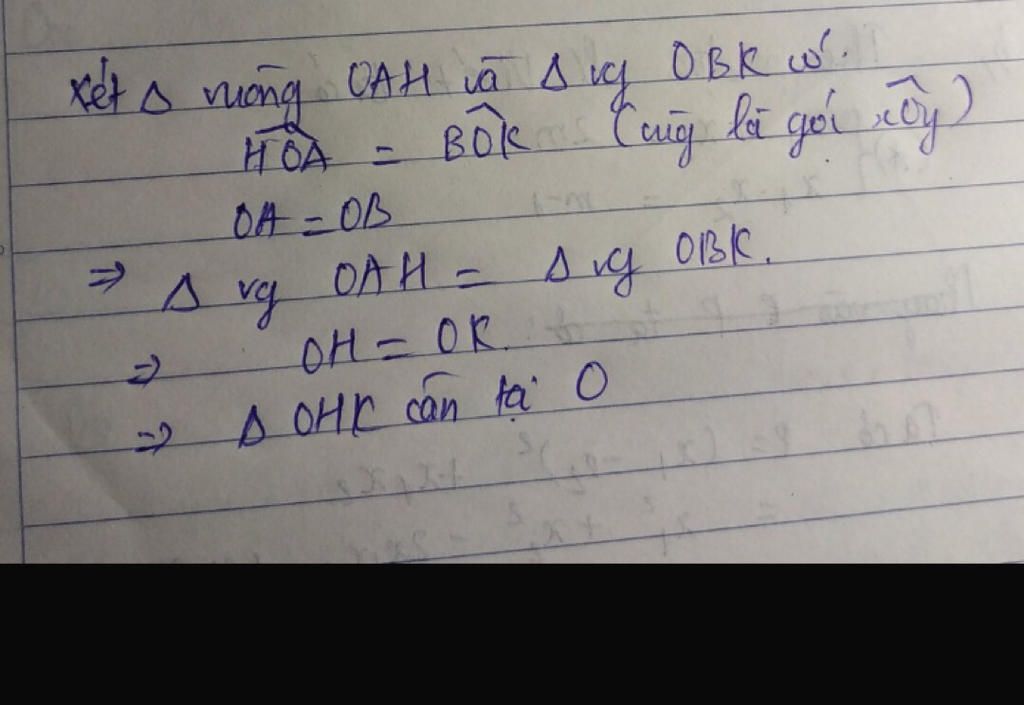 xét Δ vuông OAH và Δ vg OBK có.
HÔA = BÔK (cùng là góc xÔy)
OA = OB
⇒ Δ vg OAH = Δ vg OBK.
⇒ OH = OK.
⇒ Δ OHK cân tại O